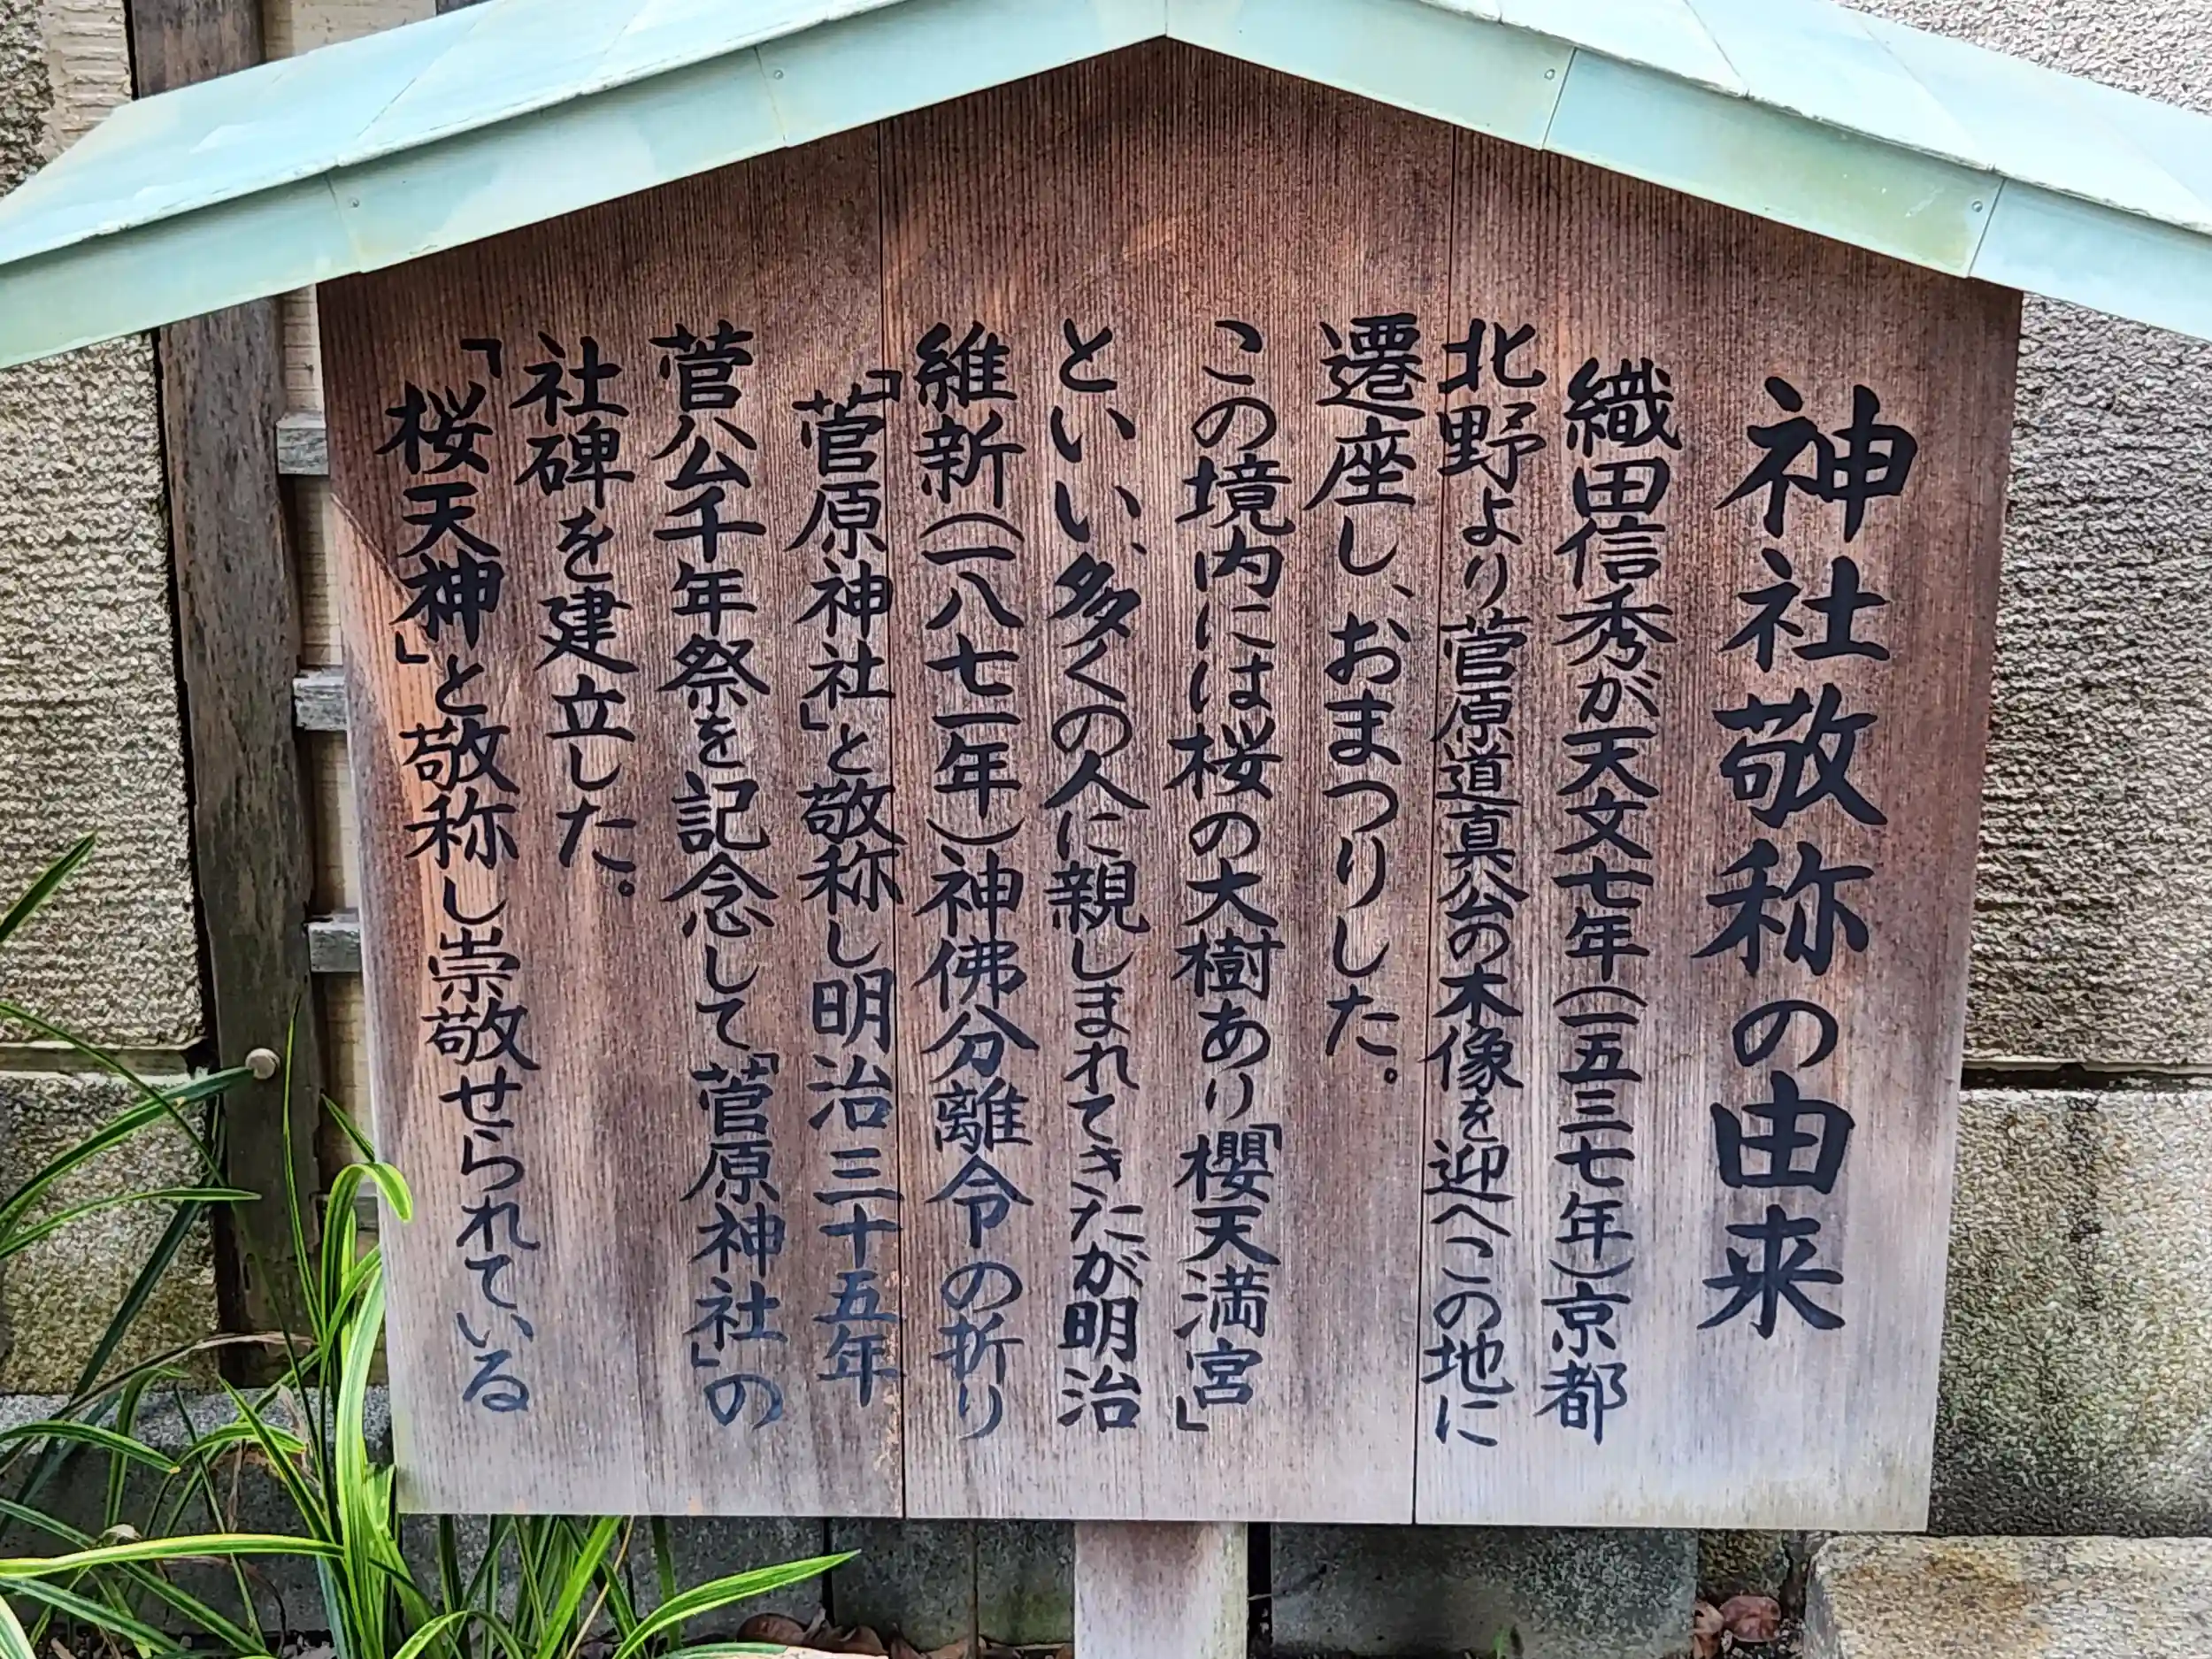 神社敬称の由来
織田信秀が天文七年(一五三七年)京都
北野より菅原道真公の木像を迎へこの地に
遷座し、おまつりした。
この境内には桜の大樹あり「櫻天満宮」
といい、多くの人に親しまれてきたが明治
維新(一八七一年)神佛分離令の折り
「菅原神社」と敬称し明治三十五年
菅公千年祭を記念して「菅原神社」の
社碑を建立した。
「桜天神」と敬称し崇敬せられている